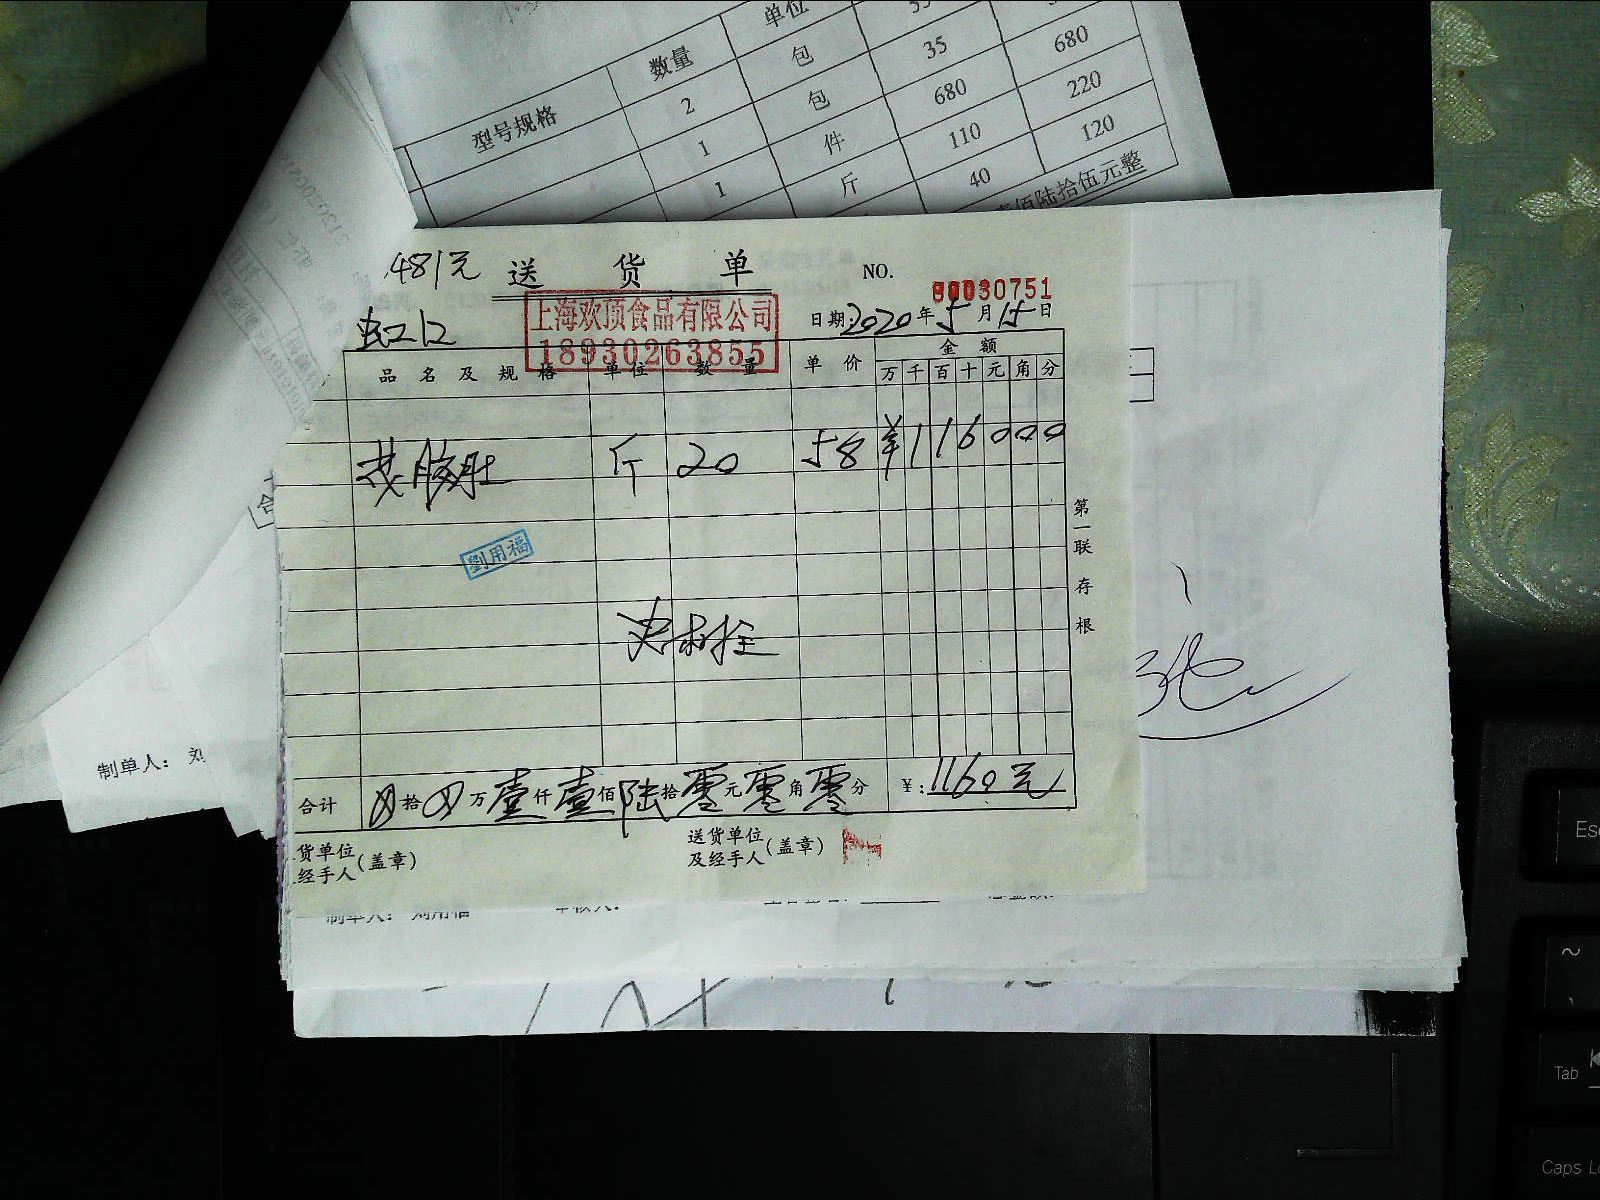 型号规格 数量 单位
2 包 35 680
1 包 680 220
1 件 110 120
斤 40
佰陆拾伍元整
481元 送货单 NO. 00030751
虹口 上海欢顶食品有限公司 日期:2020年5月15日
18930263855
品名及规格 单位 数量 单价 金额
万 千 百 十 元 角 分
斤 20 58 ¥116000
劉用福
第一联 存根
合计 拾 万壹仟壹佰陆拾零元零角零分 ¥:1160元
货单位 (盖章) 送货单位 (盖章)
经手人 及经手人
制单人: 刘
制单人: 刘用福
Esc
~
Tab
Caps Lo